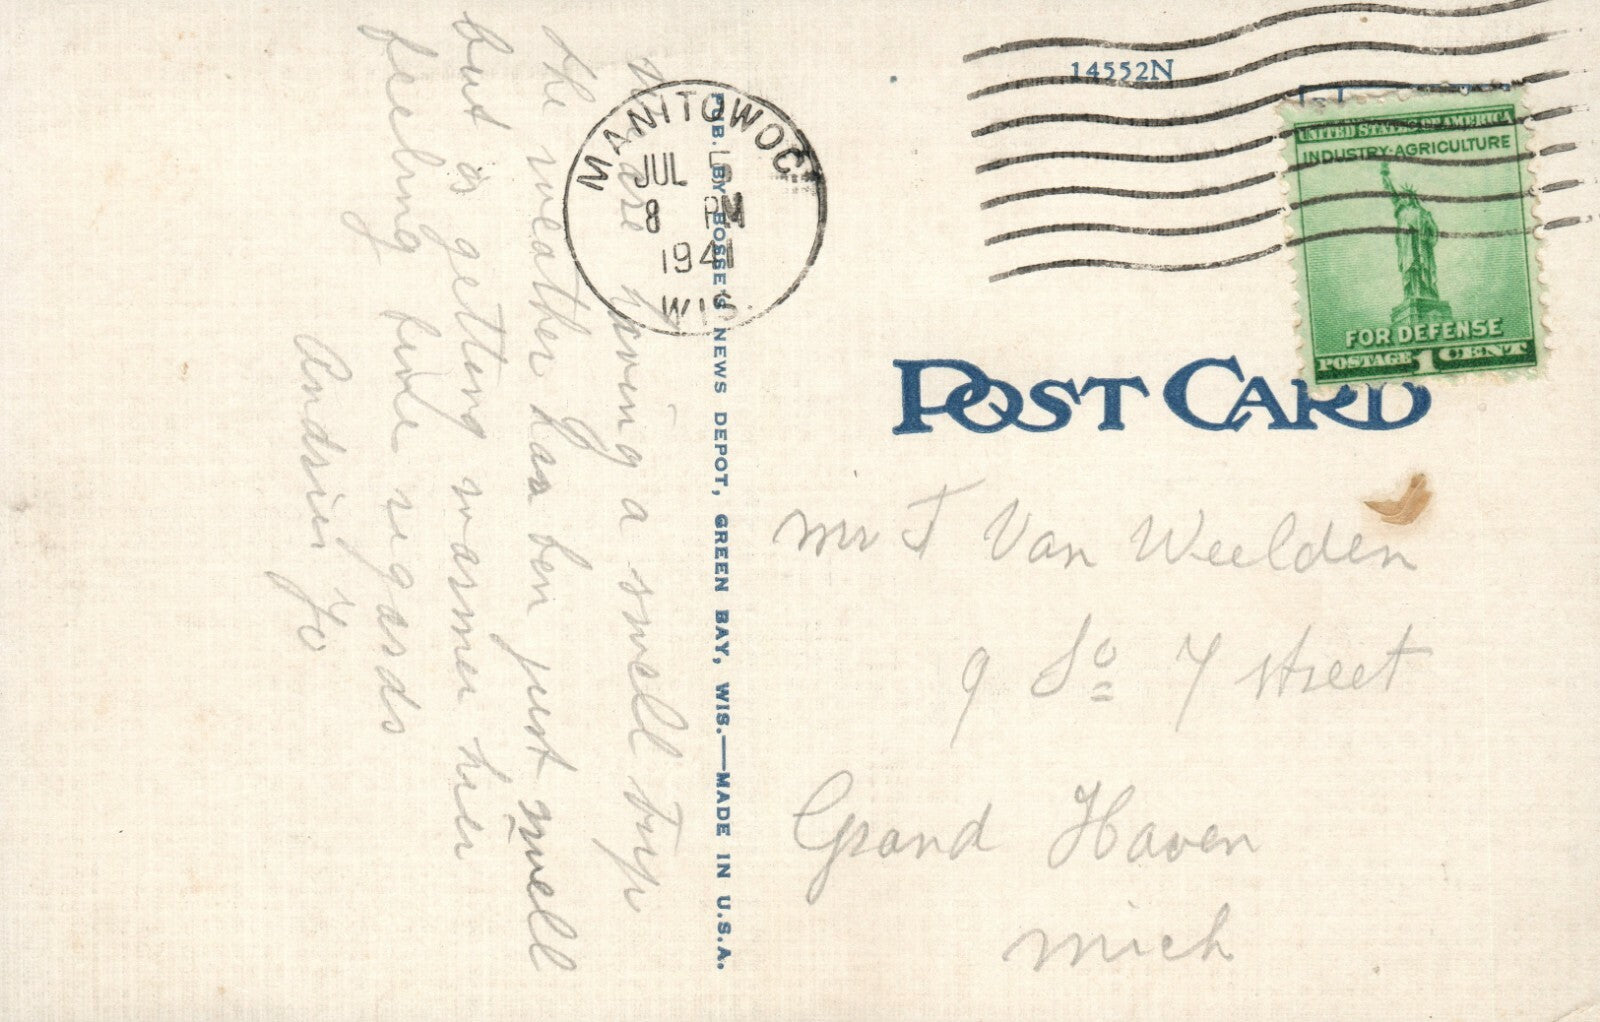 14552N
UNITED STATES OF AMERICA
INDUSTRY·AGRICULTURE
FOR DEFENSE
POSTAGE 1 CENT
MANITOWOC
JUL 5
8 PM
1941
WIS.
POST CARD
PUB. BY BOSSE'S NEWS DEPOT, GREEN BAY, WIS.—MADE IN U.S.A.
We are having a swell trip
the weather has ben just swell
but is getting warmer heer
feeling fine regards
Andrew Jo
Mr J Van Weelden
9 So 7 street
Grand Haven
Mich